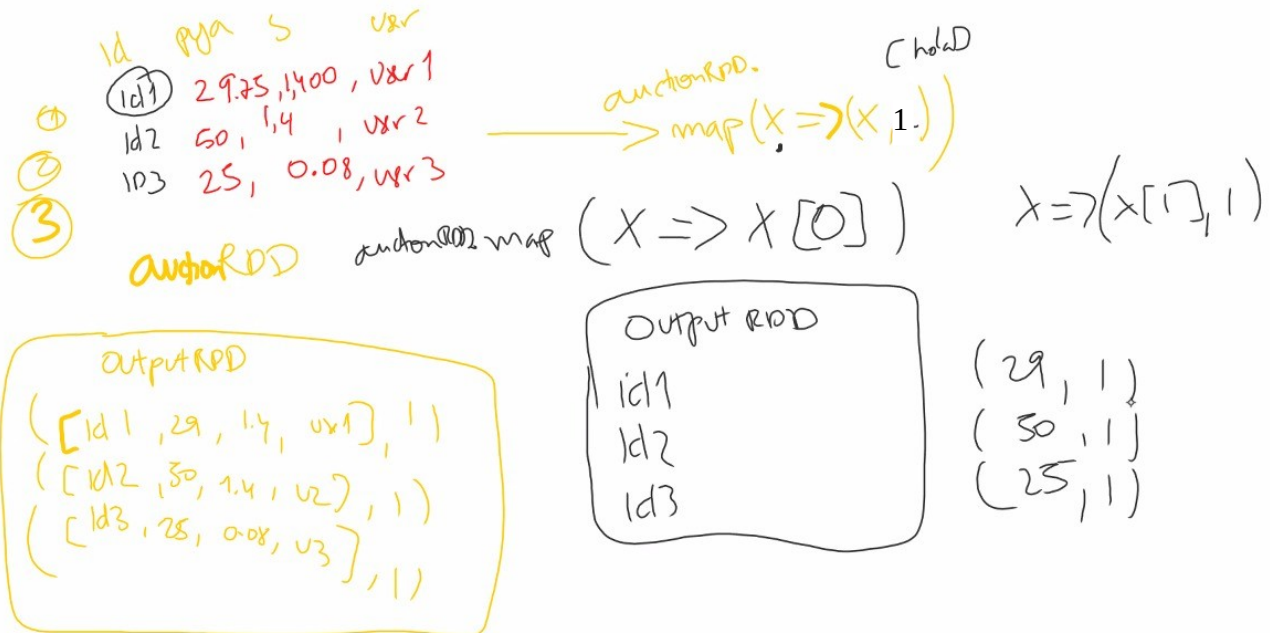 Id puja S usr
① Id1 29.75, 1,400, usr 1
② Id2 50, 1,4, usr 2
③ ID3 25, 0.08, usr 3
auctionRDD
auctionRDD.
map(x => (x, 1.))
[hola]
auctionRDD.map (X => X[0])
X => (X[1], 1)
OutputRDD
([Id1, 29, 1.4, usr1], 1)
([Id2, 50, 1.4, u2], 1)
([Id3, 25, 0.08, u3], 1)
Output RDD
id1
Id2
Id3
(29, 1)
(50, 1)
(25, 1)